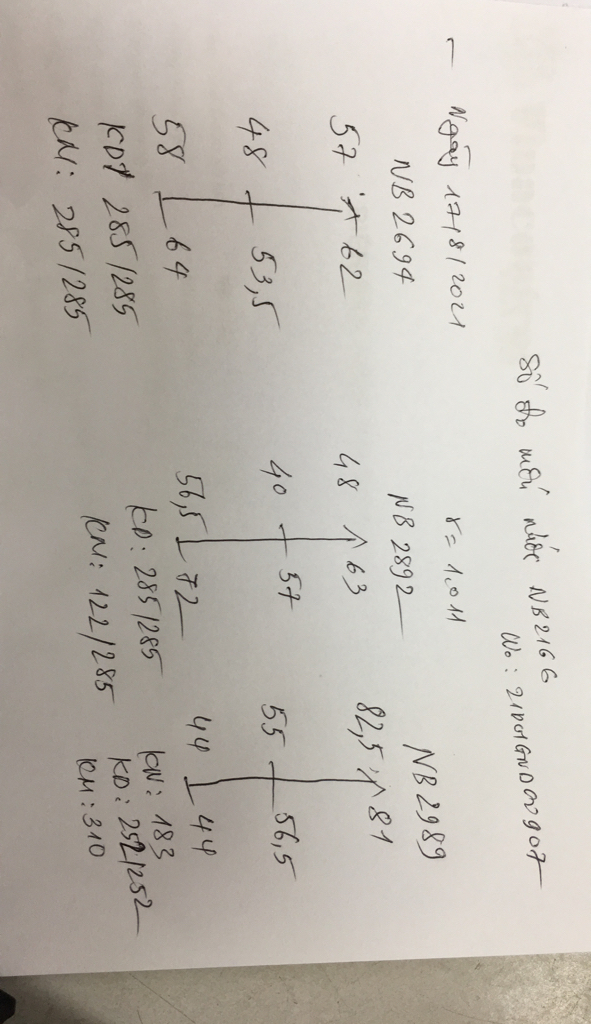 Số đo mớn nước NB2166
Wo: 2101GND00907
- Ngày 17/8/2021 γ = 1.011
NB 2694 NB 2892 NB 2989
57 62 48 63 82,5 81
48 53,5 40 57 55 56,5
58 64 56,5 72 44 44
KD 285/285 KD: 285/285 KN: 183
KN: 285/285 KN: 122/285 KD: 252/252
KM: 310